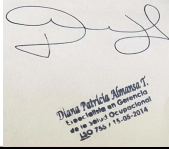 Diana Patricia Almansa T.
Especialista en Gerencia
de la Salud Ocupacional
LSO 755 / 15-05-2014